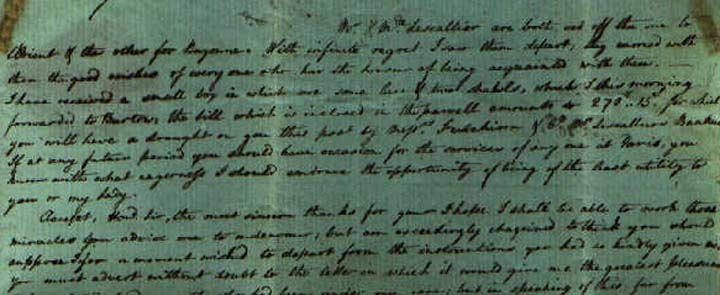 Mr. & Mrs. Lescallier are both set off the one to
L'Orient & the other for Bayonne. With infinite regret I saw them depart, they carried with
them the good wishes of every one who has the honour of being acquainted with them.
I have received a small box in which are some lace & two shakels, which I this morning
forwarded to Burton, the bill which is inclosed in the parcell amounts to 273..15. for which
you will have a draught on you this post by Messrs. & Co. Mr. Lescallier's Bankers
If at any future period you should have occasion for the services of any one at Paris, you
know with what eagerness I should embrace the opportunity of being of the least utility to
you or my lady.
Accept, Hond. Sir, the most sincere thanks for your I hope I shall be able to work those
miracles you advise me to endeavour; but am exceedingly chagrined to think you should
suppose I for a moment wished to depart from the instructions you had so kindly given me
You must advert without doubt to the letter in which it would give me the greatest pleasure
been under my care; but in speaking of this, far from